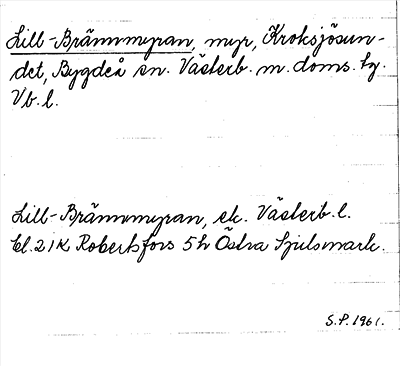 Lill-Brännmyran, myr, Kroksjösun-
det, Bygdeå sn. Västerb. m. doms. tg.
Vb. l.
Lill-Brännmyran, ek. Västerb. l.
bl. 21K Robertsfors 5h Östra Sjulsmark.
S.P. 1961.